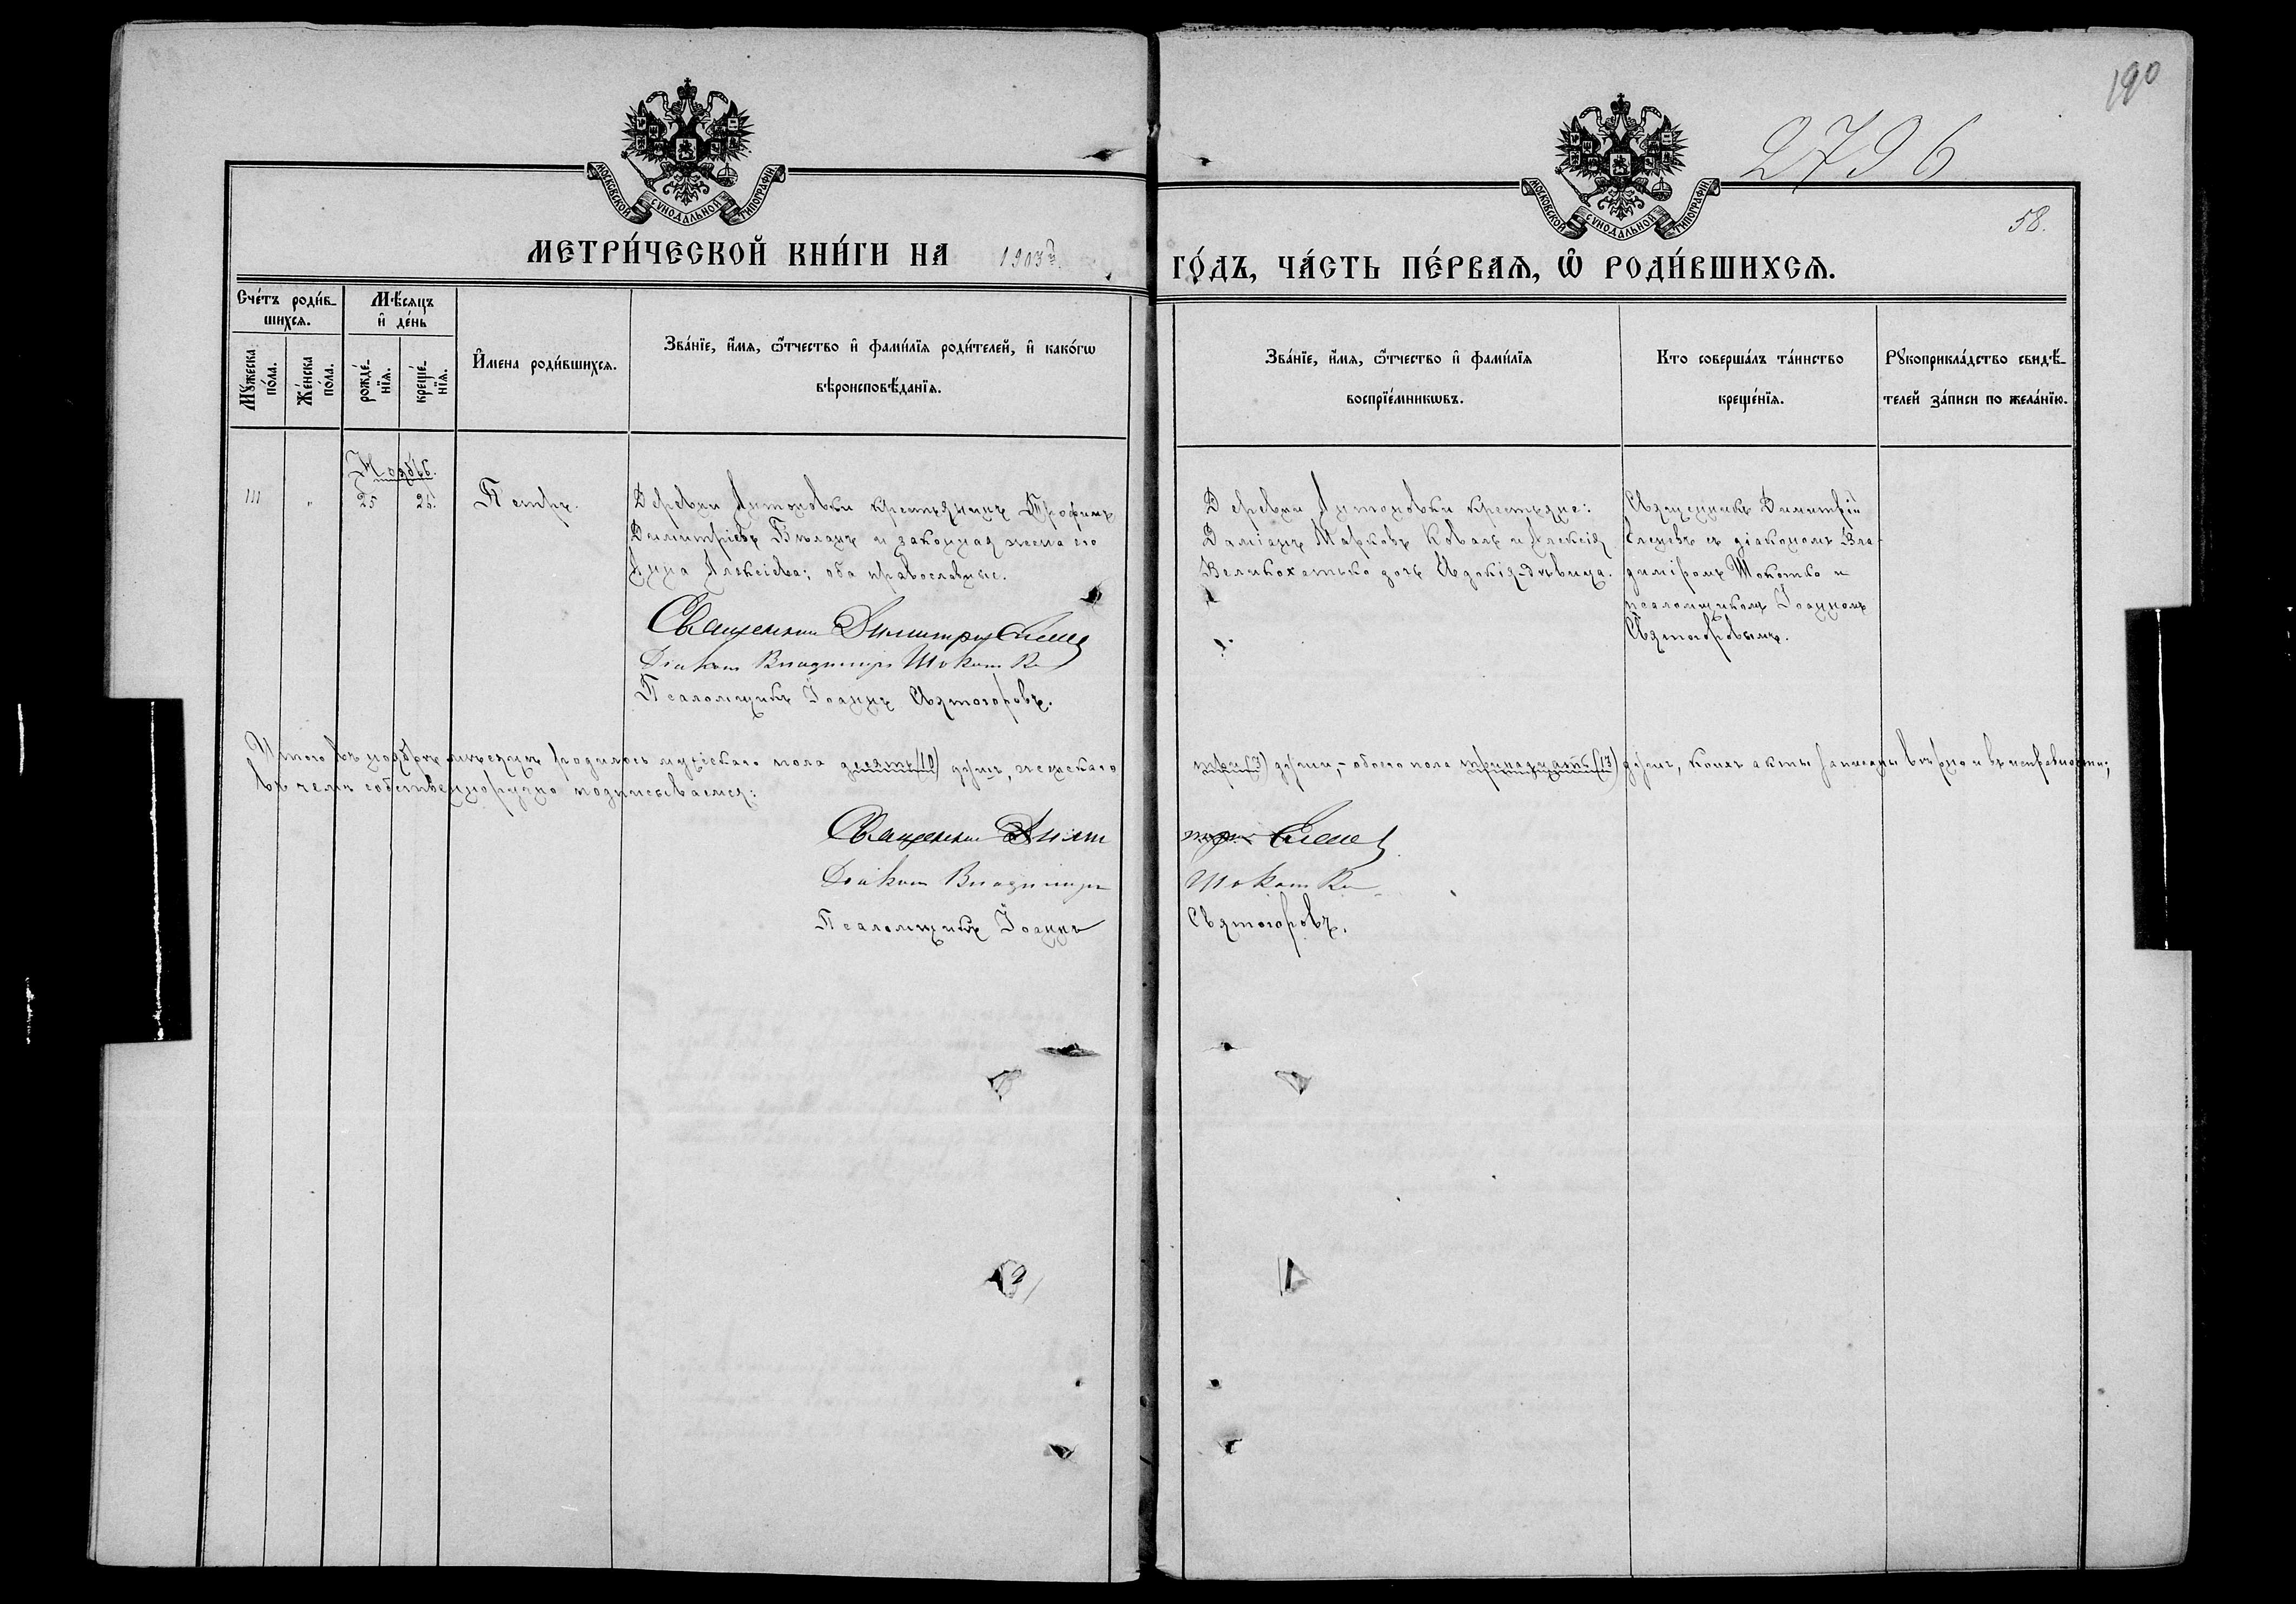 190
2796
58.
МОСКОВСКОЙ СѴНОДАЛЬНОЙ ТИПОГРАФІИ.
МОСКОВСКОЙ СѴНОДАЛЬНОЙ ТИПОГРАФІИ.
МЕТРИ́ЧЕСКОЙ КНИ́ГИ НА 1903й
ГО́ДЪ, ЧА́СТЬ ПЕ́РВАѦ, Ѽ РОДИ́ВШИХСѦ.
Сче́тъ роди́в-
шихсѧ.
Мꙋжеска по́ла.
Же́нска по́ла.
Мѣ́сѧцъ
и҆ де́нь
рожде́-
нїѧ.
креще́-
нїѧ.
И҆мена роди́вшихсѧ.
Зва́нїе, и҆́мѧ, ѻ҆́тчество и҆ фамі́лїѧ роди́телей, и҆ како́гѡ
вѣроисповѣ́данїѧ.
Зва́нїе, и҆́мѧ, ѻ҆́тчество и҆ фамі́лїѧ
воспрїе́мникѡвъ.
Кто соверша́лъ та́инство
креще́нїѧ.
Рꙋкоприкла́дство свидѣ́-
телей за́писи по жела́нїю.
Ноябрь.
111 " 25 25. Петръ.
Деревни Антоновки крестьянинъ Трофимъ
Димитріевъ Бѣланъ и законная жена его
Анна Алексіева; оба православные.
Священникъ Димитрій
Діаконъ Владиміръ Шокотко
Псаломщикъ Іоаннъ Святогоровъ.
Деревни Антоновки крестьяне:
Даміанъ Марковъ Коваль и Алексія
Великохатько дочь Евдокія-дѣвица.
Священникъ Димитрій
Еленевъ съ діакономъ Вла-
диміромъ Шокотко и
псаломщикомъ Іоанномъ
Святогоровымъ.
Итого въ ноябрѣ мѣсяцѣ родилось мужескаго пола десять (10) душъ, женскаго
три (3) души,- обоего пола тринадцать (13) душъ, коихъ акты записаны вѣрно и въ исправности;
въ чемъ собственноручно подписываемся:
Священникъ Дими
трій
Діаконъ Владиміръ
Шокотко
Псаломщикъ Іоаннъ
Святогоровъ.